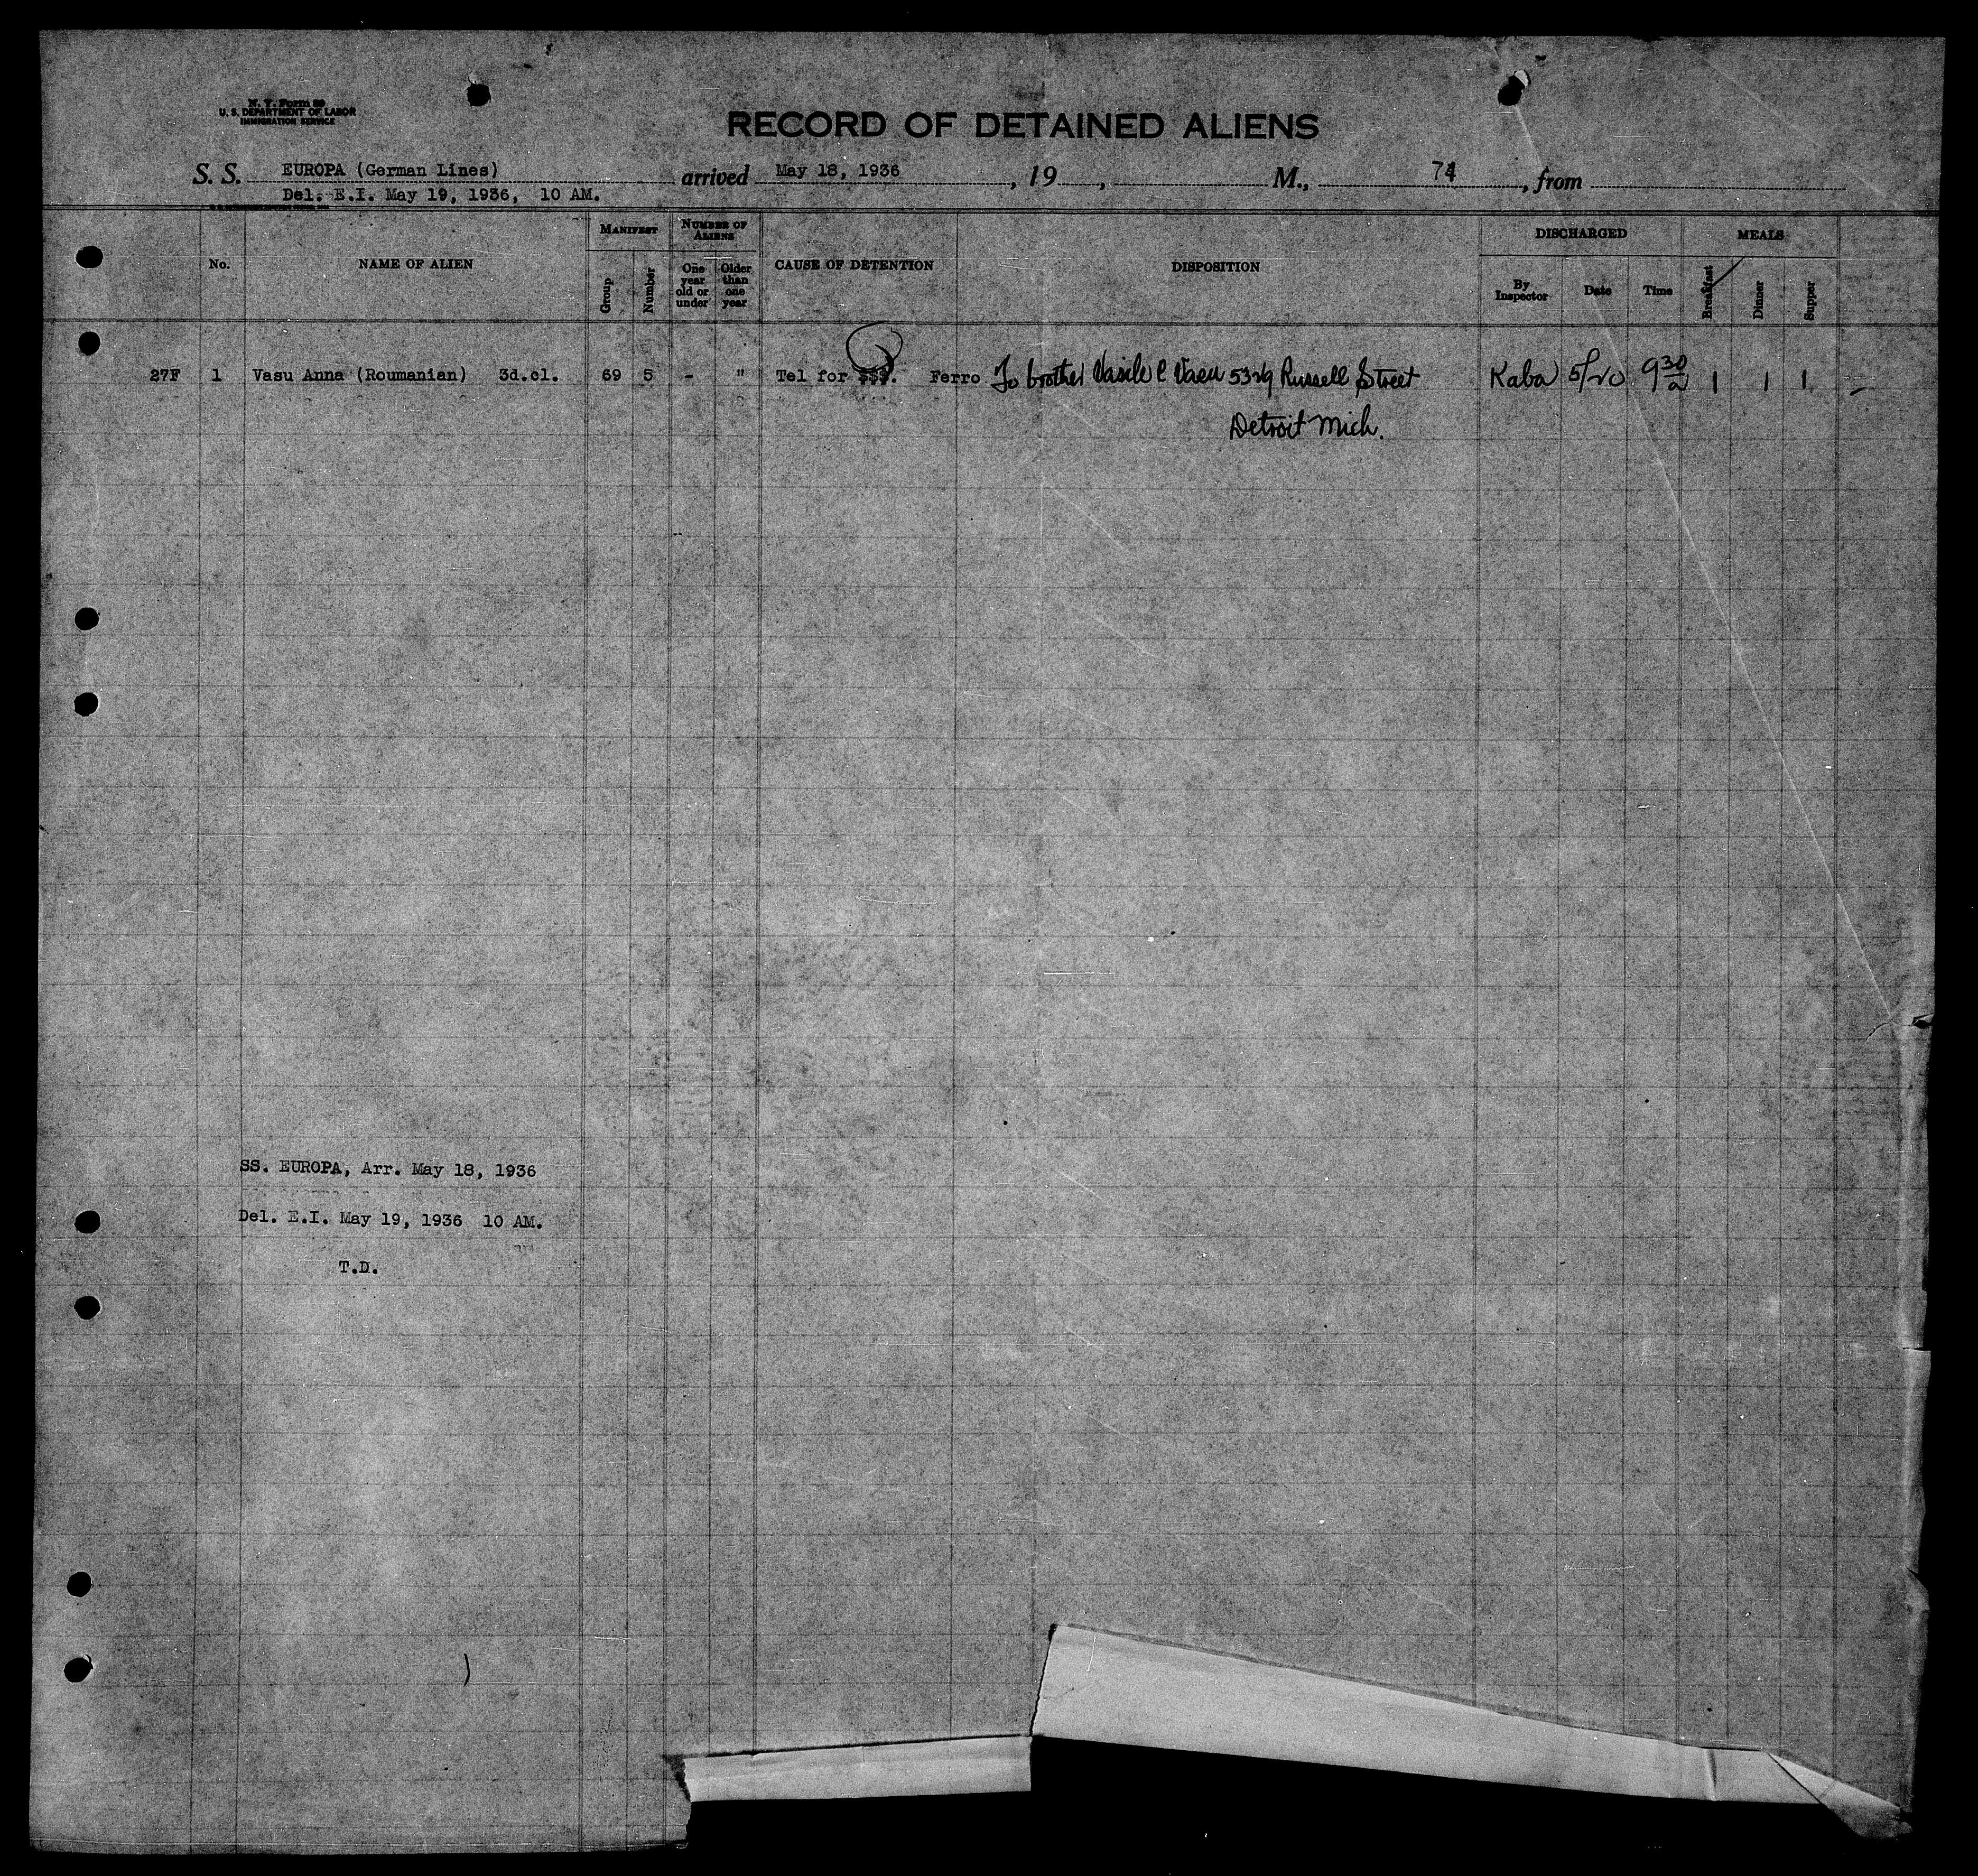 N. Y. Form 89
U. S. DEPARTMENT OF LABOR
IMMIGRATION SERVICE
RECORD OF DETAINED ALIENS
S. S. EUROPA (German Lines) arrived May 18, 1936, 19, M., 74, from
Del. E.I. May 19, 1936, 10 AM.
No.
NAME OF ALIEN
MANIFEST
Group
Number
NUMBER OF ALIENS
One year old or under
Older than one year
CAUSE OF DETENTION
DISPOSITION
DISCHARGED
By Inspector
Date
Time
MEALS
Breakfast
Dinner
Supper
27F 1 Vasu Anna (Roumanian) 3d.cl. 69 5 - " Tel for $$$. Ferro To brother Vasile C Vasu 5329 Russell Street Kaba 5/20 9 30 a 1 1 1 -
Detroit Mich.
SS. EUROPA, Arr. May 18, 1936
Del. E.I. May 19, 1936 10 AM.
T.D.